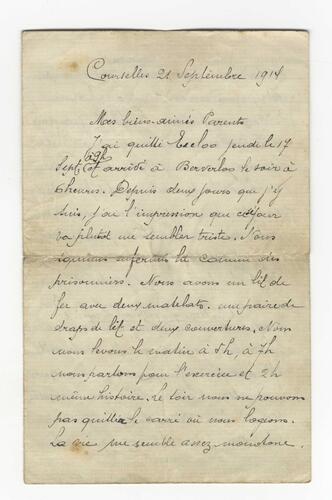 Courselles 21 Septembre 1914
Mes biens-aimés Parents
J'ai quitté Eecloo jeudi le 17
Sept. et arrivée à Berverloo le soir à
6 heures. Depuis deux jours que j'y
suis, j'ai l'impression que ce séjour
va plutôt me sembler triste. Nous
sommes enfermés là comme des
prisonniers. Nous avons un lit de
fer avec deux matelats. une paire de
draps de lit et deux couvertures. Nous
nous levons le matin à 5h à 7h
nous partons pour l'exercice et 2h
même histoire. Le soir nous ne pouvons
pas quitter le carré où nous logeons.
La vie me semble assez monotone.